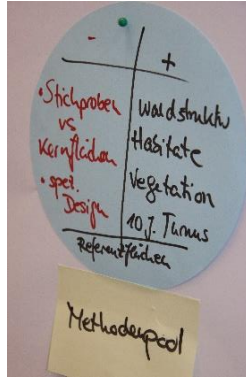 - +
• Stichproben
vs
Kernflächen
• spez.
Design
Waldstruktur
Habitate
Vegetation
10 J. Turnus
Referenzflächen
Methodenpool